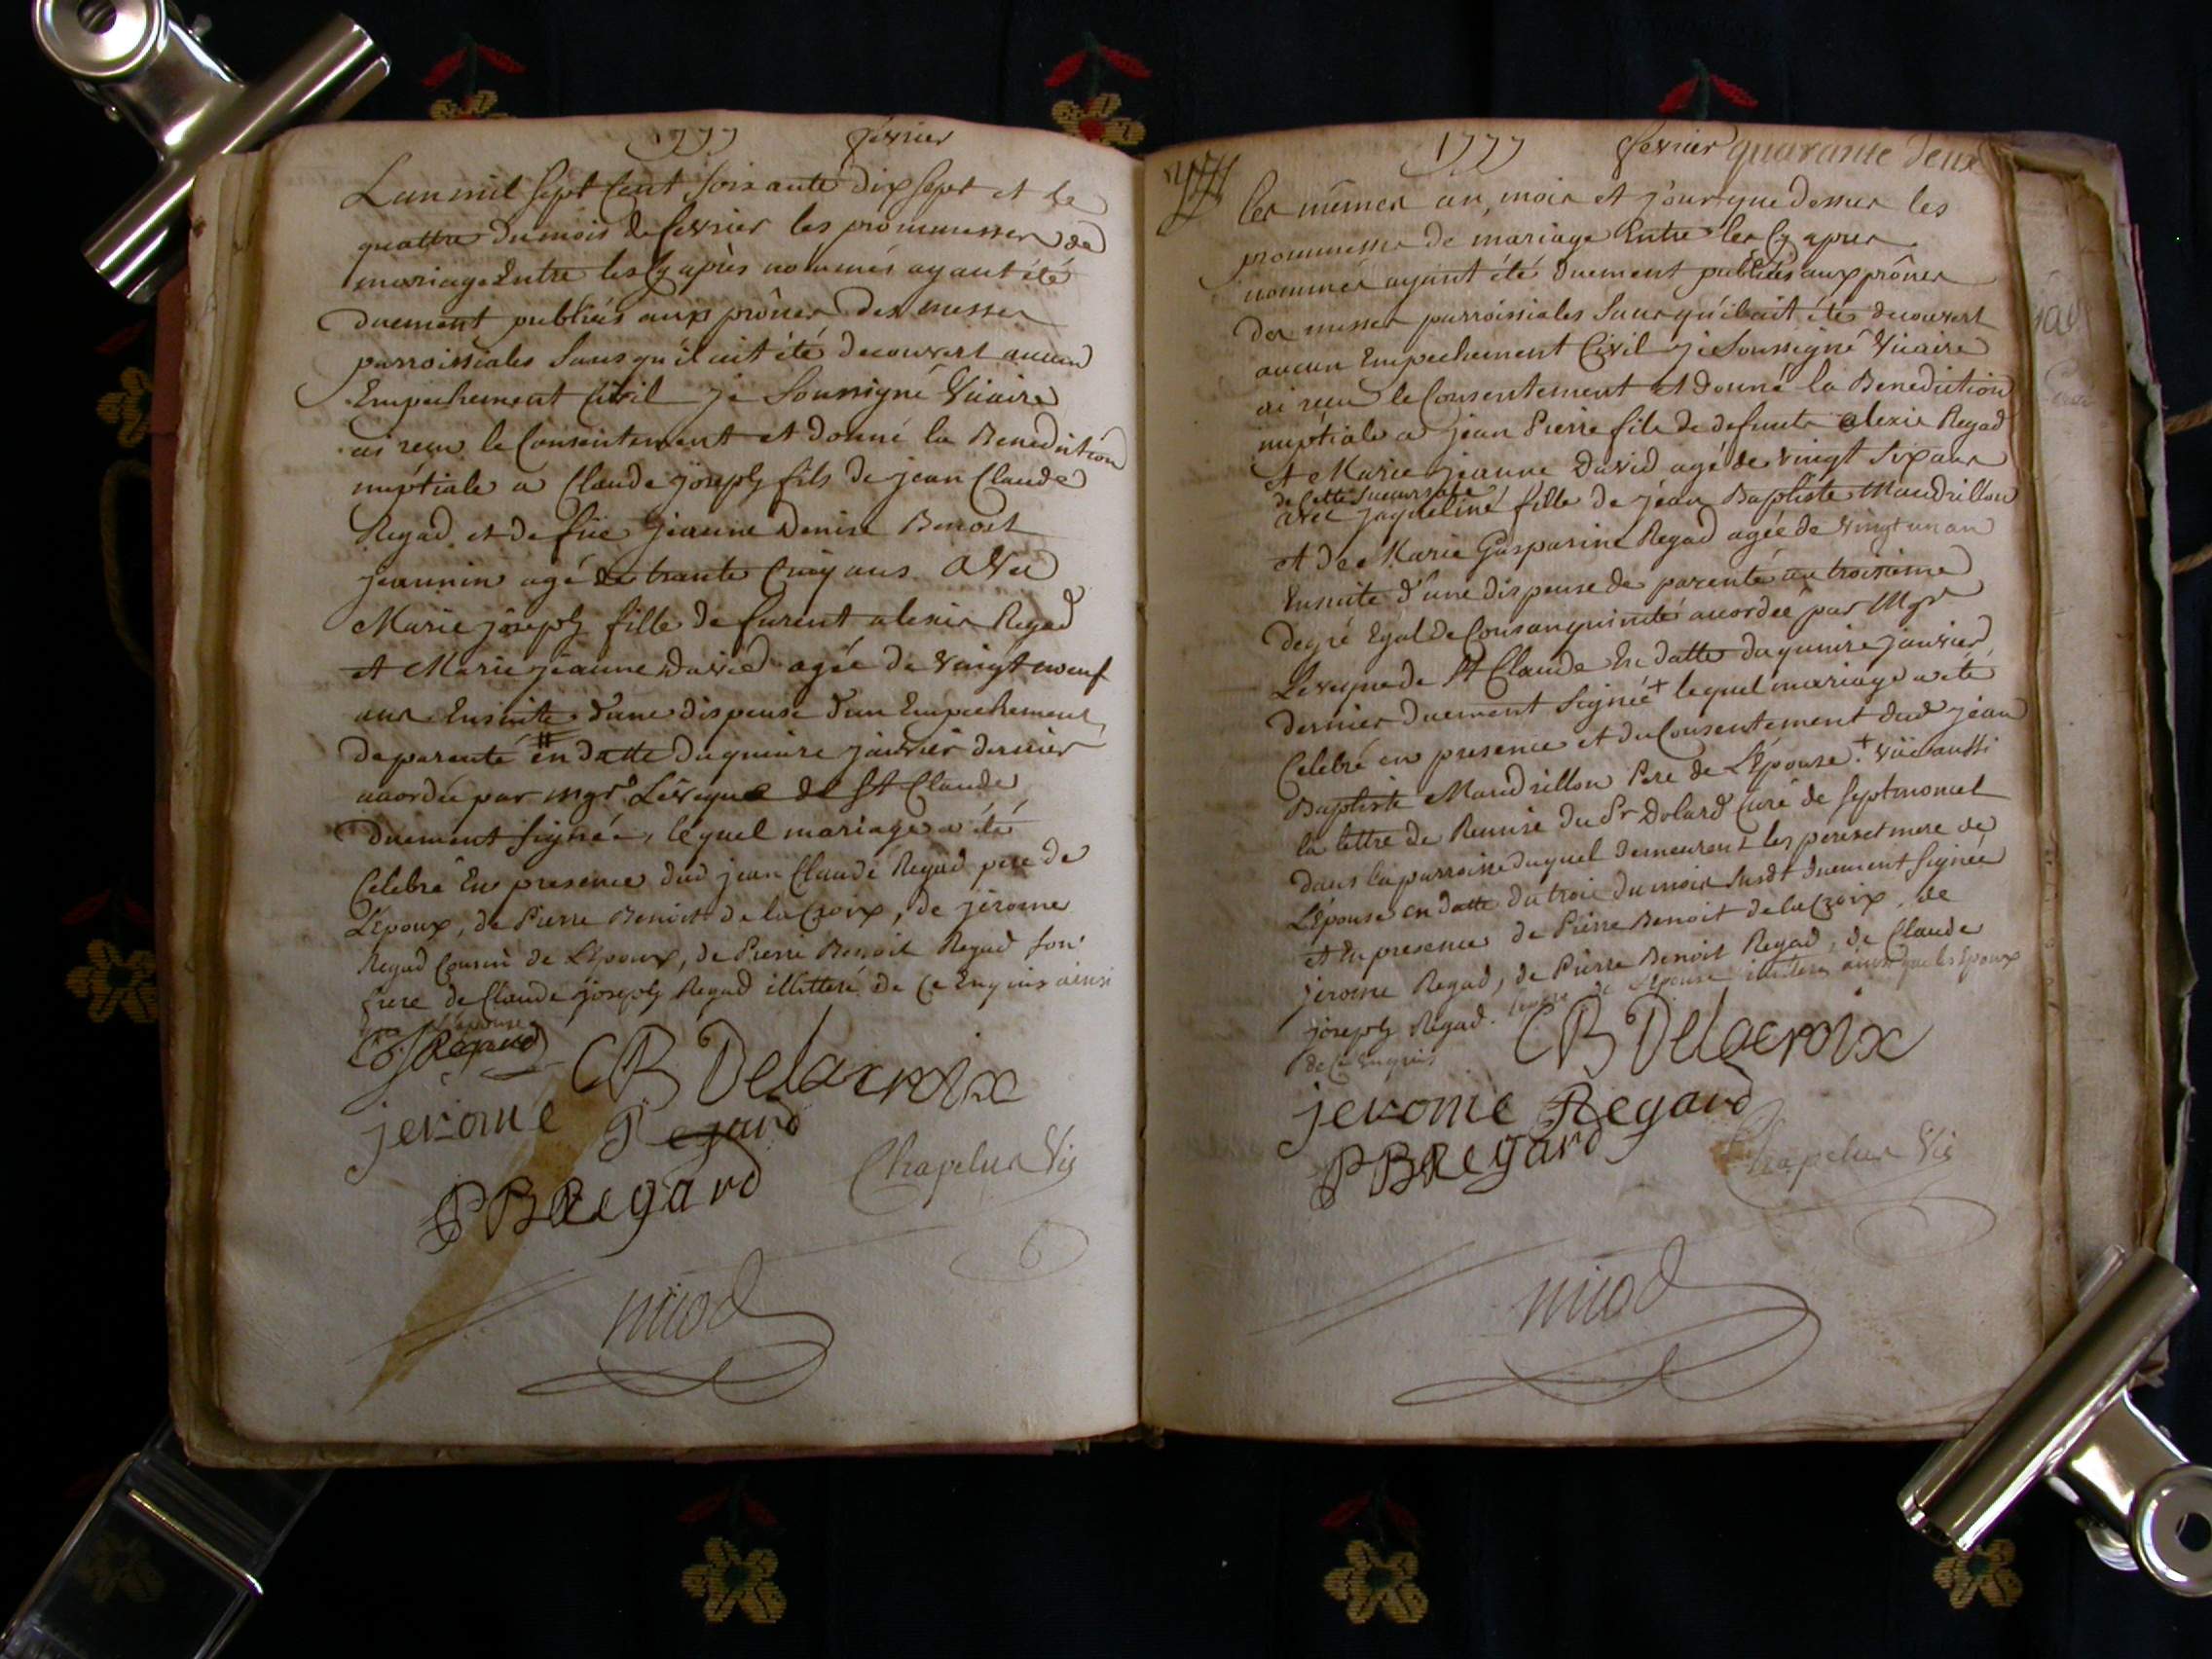 1777 fevrier
Lan mil sept cent soixante dix sept et le
quattre du mois de fevrier les prommesses de
mariage Entre les Cy après nommés ayant été
duement publiés aux prônes des messes
parroissiales sans qu'il ait été decouvert aucun
Empechement Civil je soussigné Vicaire
ai reçu le Consentement et donné la Benediction
nuptiale a Claude joseph fils de jean Claude
Regad et de füe jeanne Denise Benoit
jeannin agé de trante Cinq ans avec
Marie joseph fille de furent alexis Regad
et Marie jeanne David agée de vingt neuf
ans Ensuite d'une dispense d'un Empechement
de parenté # en datte du quinze janvier dernier
accordée par mgr L'évéque de St Claude
duement signée, lequel mariage a été
Celebré En presence dud jean Claude Regad pere de
L'Epoux, de Pierre Benoit de la Croix, de jérome
Regad Cousin de L'Epoux, de Pierre Benoit Regad son
frere de Claude joseph Regad illitteré de Ce Enquis ainsi
que l'épouse
C J Regard CB Delacroix
jerome Regard
PB Regard Chapelus Vic
nicod
1777 fevrier quarante deux
Les mêmes an, mois et jour que dessus les
prommesses de mariage Entre les Cy apres
nommés ayant été duement publiés aux prônes
des messes parroissiales sans qu'il ait été decouvert
aucun Empechement Civil je soussigné Vicaire
ai reçu le Consentement et donné la Benediction
nuptiale a jean Pierre fils de defunts alexis Regad
et Marie jeanne David agé de vingt six ans
de cette succursale
avec jaqueline fille de jean Baptiste Mandrillon
et de Marie Gasparine Regad agée de vingt un an
Ensuite d'une dispense de parenté au troisième
degré Egal de Consanguinité accordée par Mgr
L'évéque de St Claude En datte du quinze janvier
dernier duement signée + lequel mariage a été
Celebré en presence et du Consentement dud jean
Baptiste Mandrillon Pere de L'Epouse. + vüe aussi
la lettre de Remise du Sr Dolard Curé de septmoncel
dans la parroisse duquel demeurent les pere et mere de
L'Epouse en datte du trois du mois susdt duement signée
et En presence de Pierre Benoit de la Croix, de
jerome Regad, de Pierre Benoit Regad, de Claude
joseph Regad. de l'épouse ainsi que les Epoux
de Ce Enquis CB Delacroix
jerome Regard
PB Regard Chapelus Vic
nicod